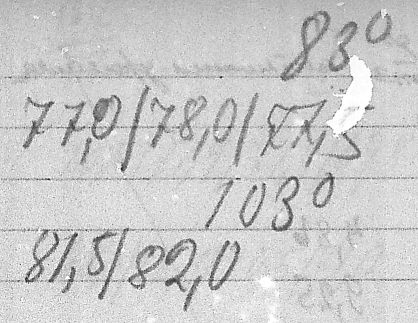 83⁰
77,0/78,0/77,5
103⁰
81,5/82,0